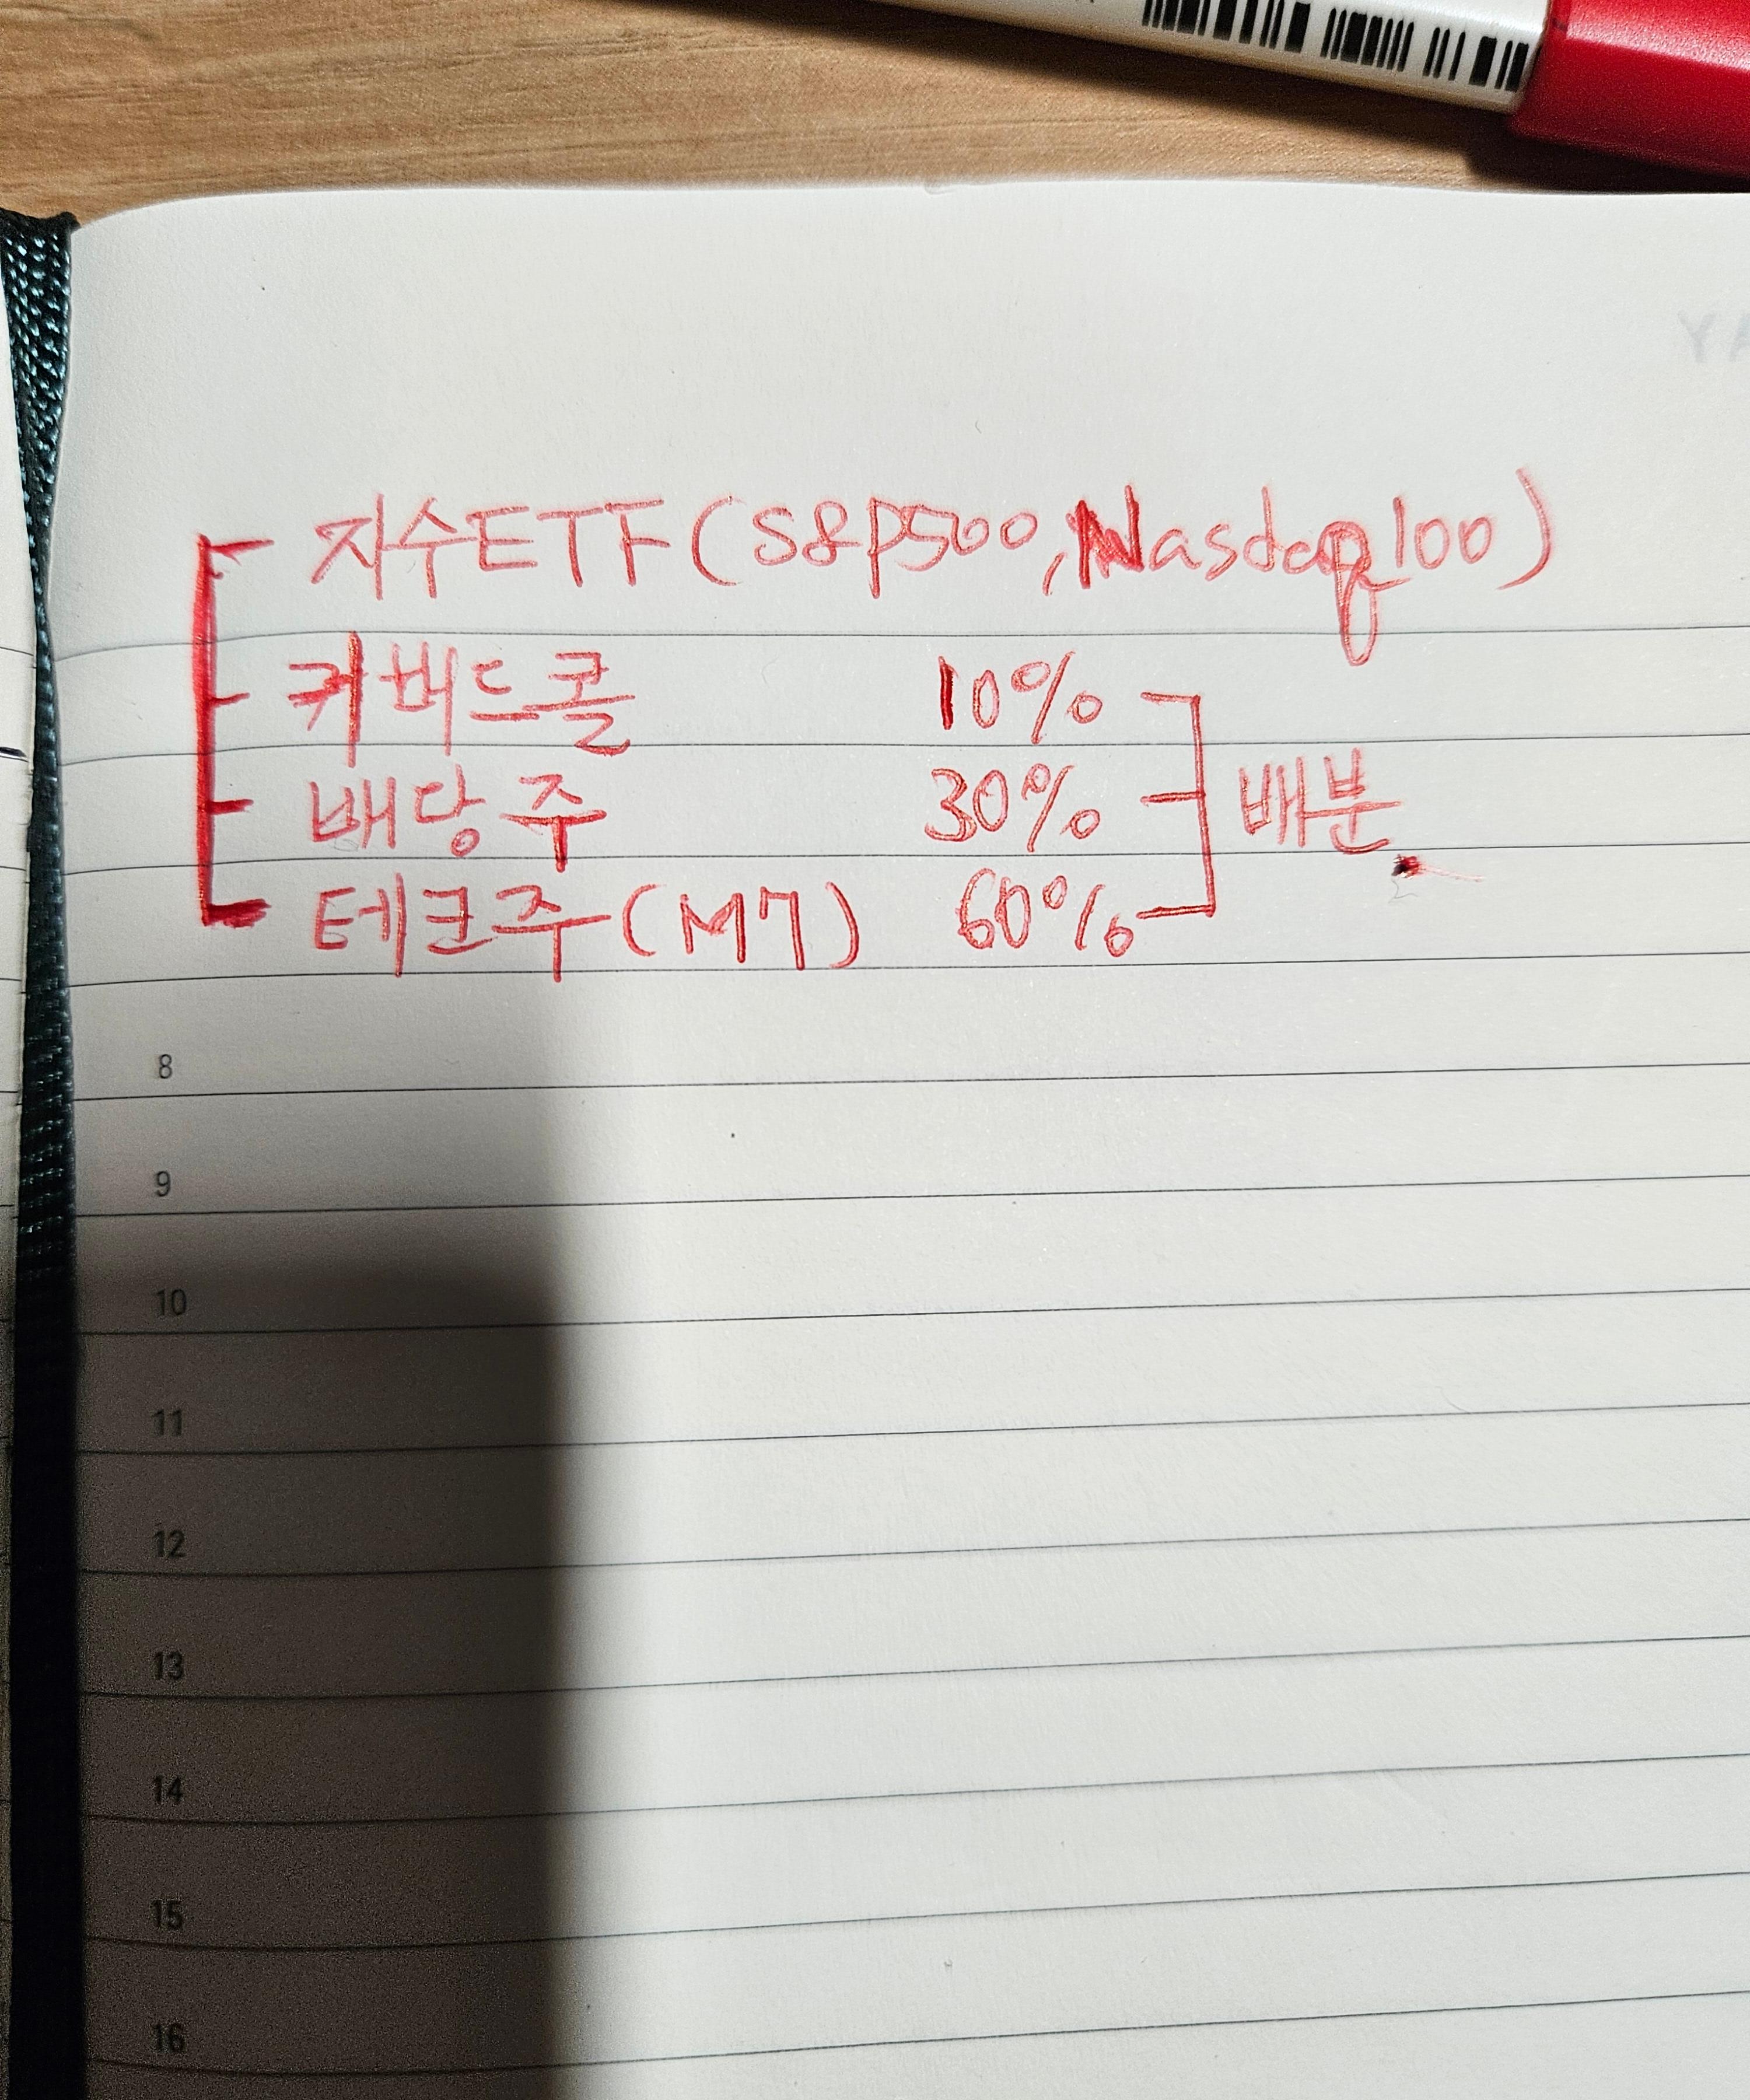 지수ETF(S&P500, Nasdaq100)
커버드콜 10%
배당주 30% 배분
테크주(M7) 60%
8
9
10
11
12
13
14
15
16